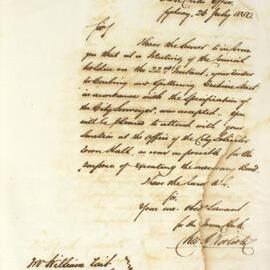 Town Clerks Office,
Sydney, 26 July 1852
Sir,
I have the honor to inform
you that at a Meeting of the Council
holden on the 22nd Instant, your tender
for Curbing and Guttering Street
in accordance with the Specification of
the City Surveyor, was accepted. You
will be pleased to attend with your
Sureties at the Office of the City Solicitor
Town Hall as soon as possible for the
purpose of executing the necessary Bond.
I have the honor &c.
Sir,
Your Servant
for the Town Clerk
Mr William